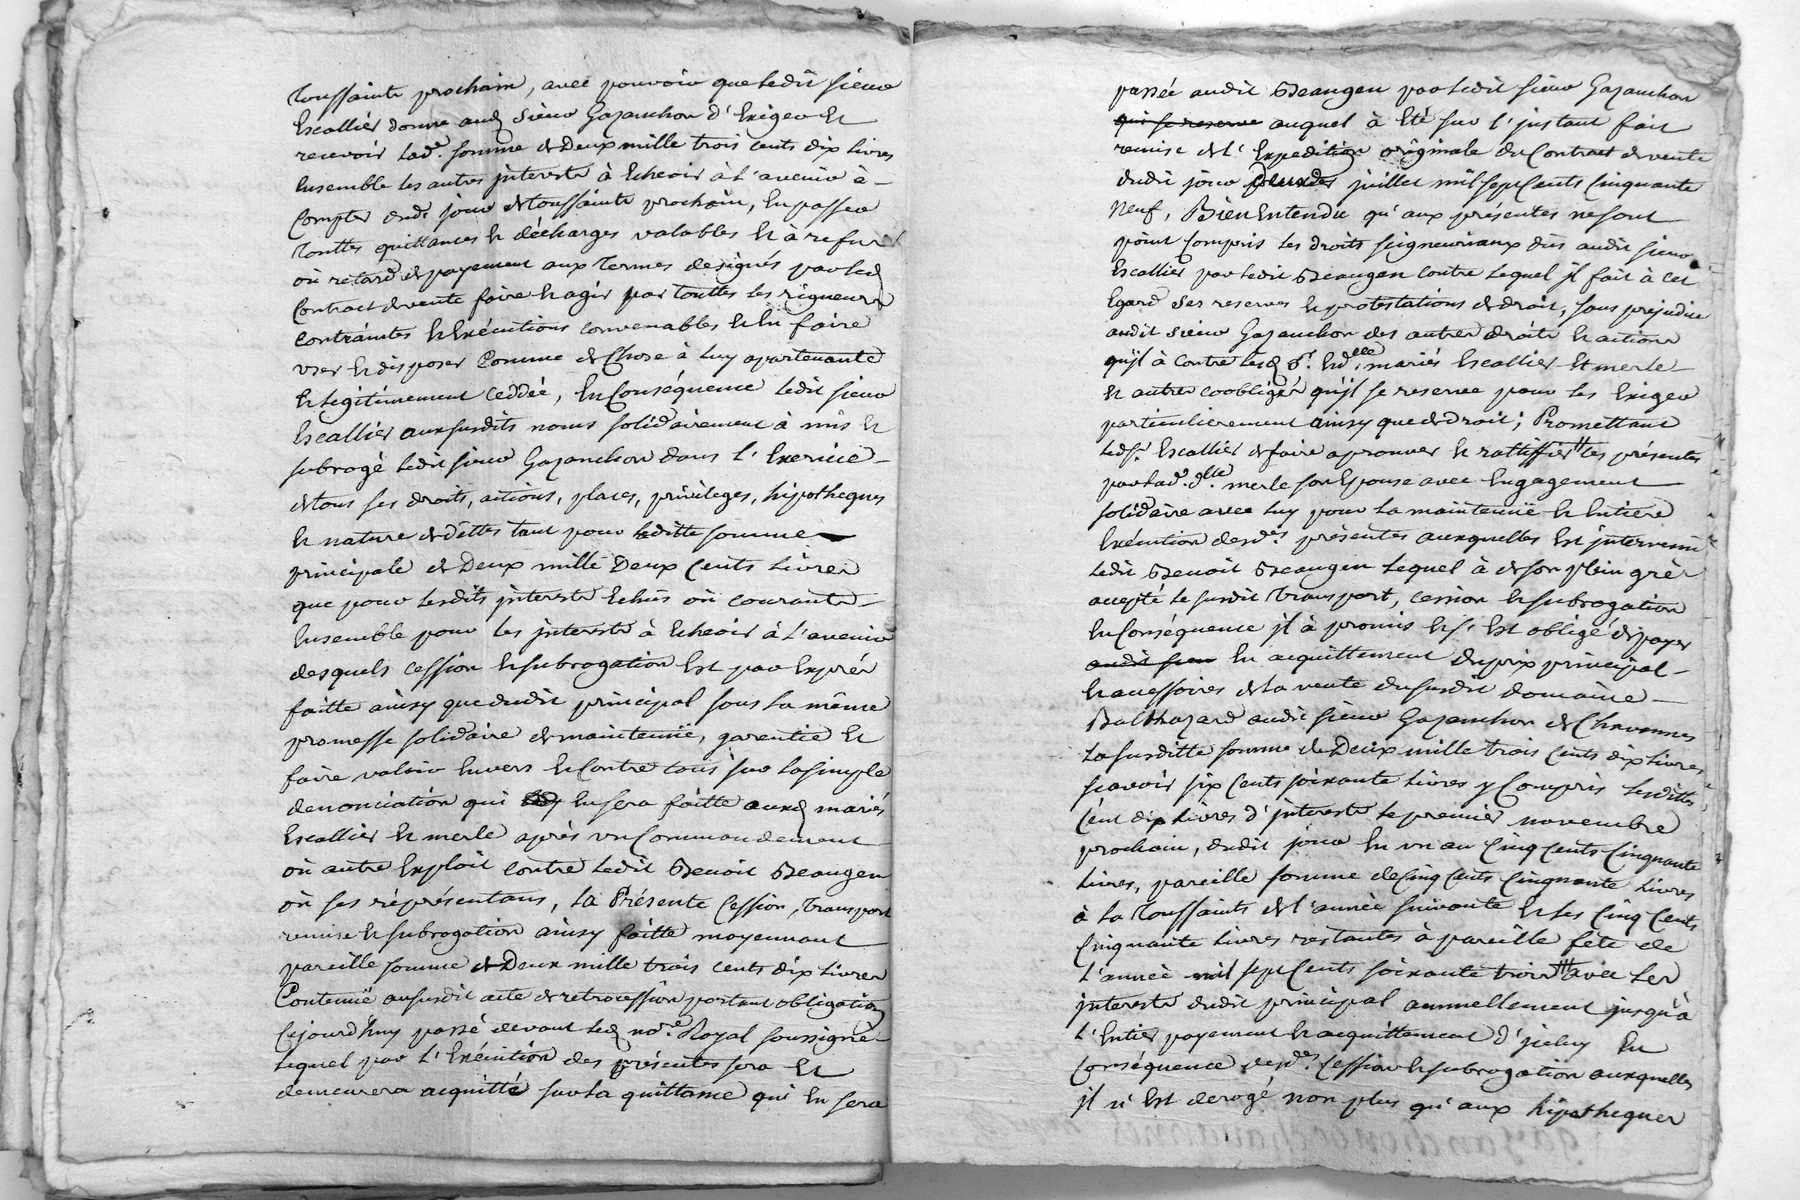 Toussaints prochain, avec pouvoir que ledit sieur
Escallier donne aud sieur Gazanchon d'Exiger Et
recevoir lade. somme de Deux mille trois cents dix livres
Ensemble les autres interests à Echeoir à l'avenir à-
compter dudt jour de toussaints prochain, En passer
Touttes quittances et décharges valables et à refus
où retard de payement aux termes designés par led
Contract de vente faire et agir par touttes les rigueurs
contraintes et Exécutions convenables et En faire
user et disposer Comme de Chose à luy apartenante
et legitimement ceddée, En Conséquence ledit sieur
Escallier aux susdits noms solidairement à mis et
subrogé ledit sieur Gazanchon dans l'Exercice-
de tous ses droits, actions, places, privileges, hipotheques
et nature de dettes tant pour laditte somme
principale de Deux mille Deux Cents Livres
que pour lesdits interests Echus où courants-
Ensemble pour les interests à Echeoir à l'avenir
desquels cession et subrogation Est par Exprés
faitte ainsy que dudit principal sous la même
promesse solidaire de maintenüe, garentie Et
faire valoir Envers et Contre tous sur la simple
denonciation qui En sera faitte auxd mariés
Escallier et merle après un Commandement
où autre Exploit contre ledit Benoit Beaugen
où ses réprésentans, la Présente Cession, transport
remise et subrogation ainsy faitte moyennant
pareille somme de Deux mille trois cents dix Livres
Contenüe au susdit acte de retrocession portant obligation
Cejourd'huy passé devant led nore. Royal soussigné-
lequel par l'Exécution des présentes sera Et
demeurera acquitté sur la quittance qui En sera
passée audit Beaugen par ledit sieur Gazanchon
qui se reserve auquel à Eté sur l'instant fait
remise de l'Expedition originale du Contract de vente
dudit jour juillet mil sept Cents Cinquante
Neuf, Bien Entendu qu'aux présentes ne sont
point compris les droits seigneuriaux dûs audit sieur
Escallier par ledit Beaugen contre lequel il fait à cet
Egard ses reserves et protestations de droit, sans prejudice
audit sieur Gazanchon des autres droits et actions
qu'jl à contre lesd Sr. Et dlle. mariés Escallier Et merle-
et autres coobligés qu'jl se reserve pour les Exiger
particulierement ainsy que de droit; Promettant
led Sr. Escallier de faire aprouver et rattiffier les présentes
par lade. dlle. merle son Epouse avec Engagement
solidaire avec luy pour la maintenüe et Entiere
Exécution desdes. présentes auxquelles Est jntervenu
ledit Benoit Beaugen lequel à de son plein gré
accepté le susdit transport, cession et subrogation
En Conséquence jl à promis et s'Est obligé de payer
audit sieur En acquittement du prix principal-
et accessoires de la vente du susdit domaine-
Balthazard audit sieur Gazanchon de Chavannes
la susditte somme de Deux mille trois cents dix livres
scavoir six Cents soixante livres y Compris lesdittes
Cent dix Livres d'interests le premier novembre
prochain, dudit jour En un an Cinq Cents Cinquante
livres, pareille somme de Cinq Cents Cinquante Livres
à la Toussaints de l'année suivante et les Cinq Cents
Cinquante Livres restantes à pareille fête de
l'année mil sept Cents soixante trois avec les
interests dudit principal annuellement jusqu'à
l'Entier payement et acquittement d'jceluy En
conséquence desdes. Cession et subrogation auxquelles
jl n'Est derogé non plus qu'aux hipotheques